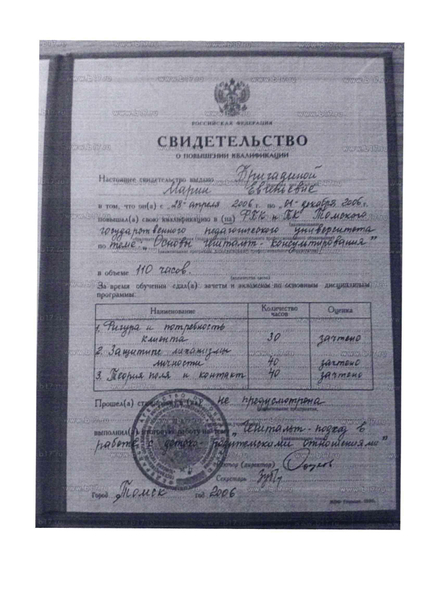 РОССИЙСКАЯ ФЕДЕРАЦИЯ
СВИДЕТЕЛЬСТВО
О ПОВЫШЕНИИ КВАЛИФИКАЦИИ
Настоящее свидетельство выдано Бригадиной
Марии Евгеньевне
в том, что он(а) с 28 апреля 2006 г. по 01 декабря 2006 г.
повышал(а) свою квалификацию в (на) ФПК и ПК Томского
государственного педагогического университета
по теме „Основы гештальт-консультирования"
в объеме 110 часов.
За время обучения сдал(а) зачеты и экзамены по основным дисциплинам
программы:
Наименование Количество часов Оценка
1. Фигура и потребность
клиента 30 зачтено
2. Защитные механизмы
личности 40 зачтено
3. Теория поля и контакт 40 зачтено
Прошел(а) не предусмотрена
выполнил(а) „Гештальт-подход в
работе с детско-родительскими отношениями"
Ректор (директор)
Секретарь
Город Томск год 2006